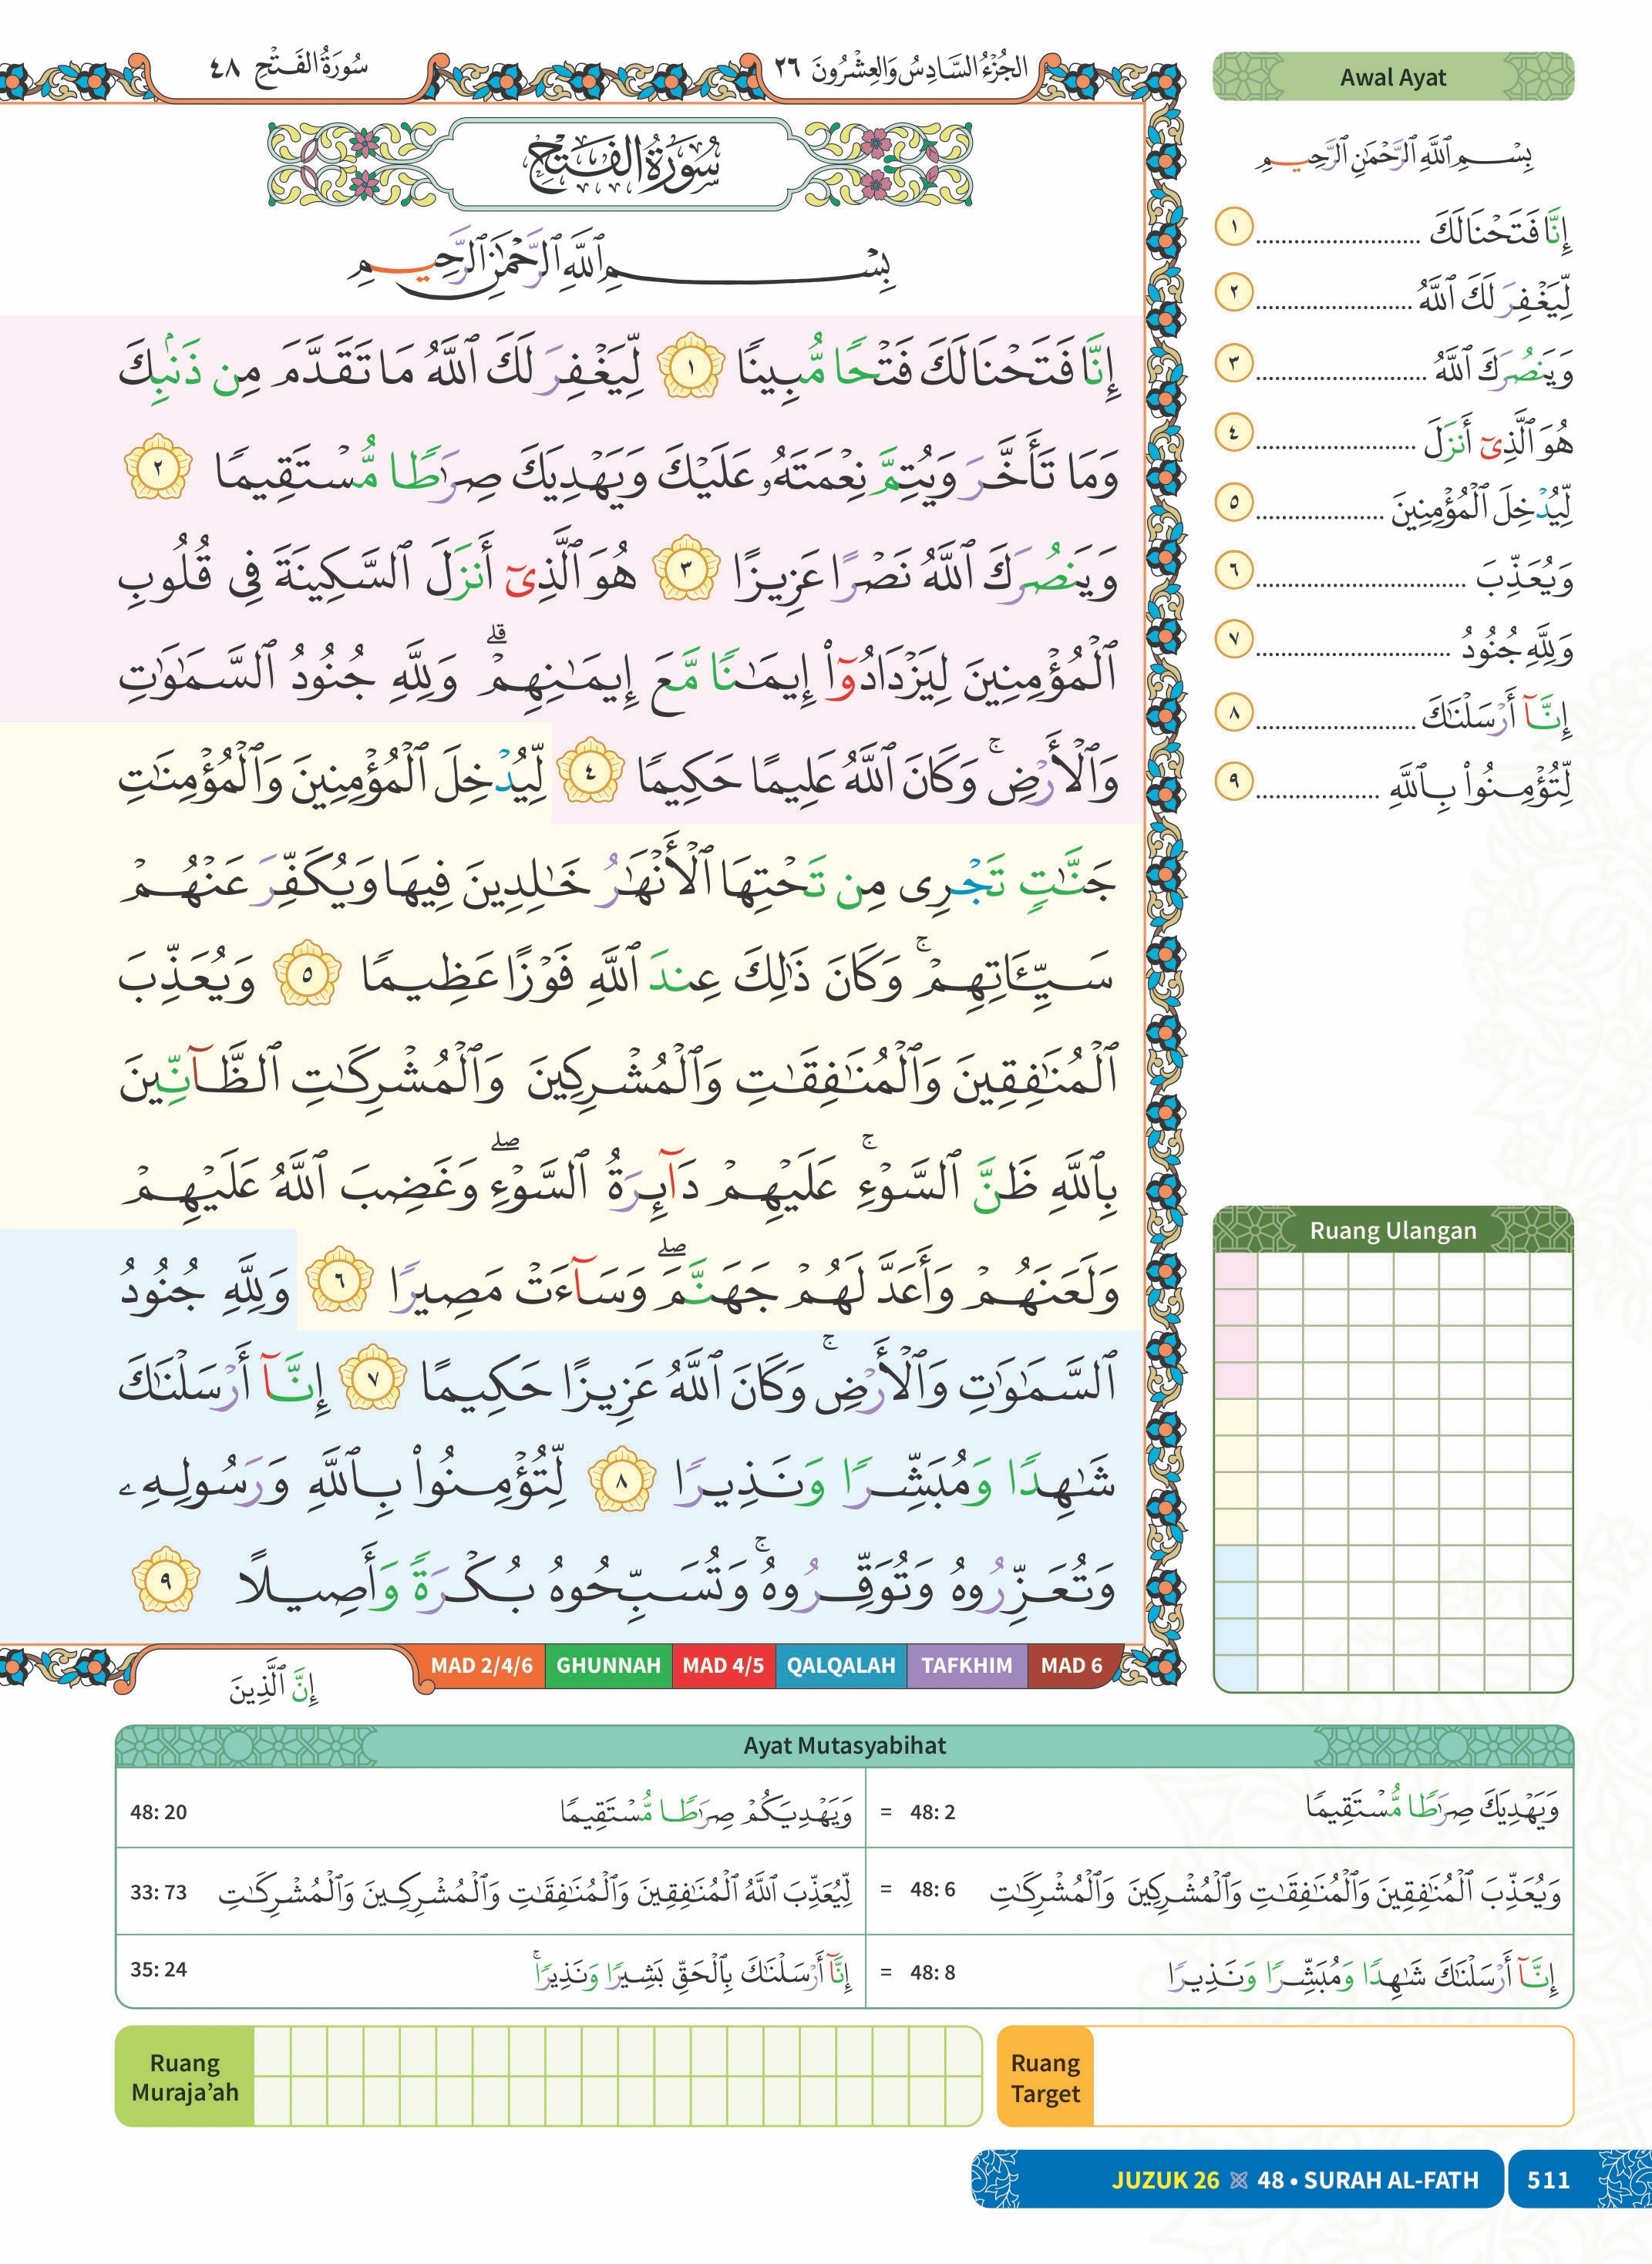 سُورَةُ الفَتْحِ ٤٨
الجُزْءُ السَّادِسُ وَالعِشْرُونَ ٢٦
سُورَةُ الفَتْحِ
بِسْمِ ٱللَّهِ ٱلرَّحْمَٰنِ ٱلرَّحِيمِ
إِنَّا فَتَحْنَا لَكَ فَتْحًا مُّبِينًا ١ لِّيَغْفِرَ لَكَ ٱللَّهُ مَا تَقَدَّمَ مِن ذَنۢبِكَ
وَمَا تَأَخَّرَ وَيُتِمَّ نِعْمَتَهُۥ عَلَيْكَ وَيَهْدِيَكَ صِرَٰطًا مُّسْتَقِيمًا ٢
وَيَنصُرَكَ ٱللَّهُ نَصْرًا عَزِيزًا ٣ هُوَ ٱلَّذِىٓ أَنزَلَ ٱلسَّكِينَةَ فِى قُلُوبِ
ٱلْمُؤْمِنِينَ لِيَزْدَادُوٓا۟ إِيمَٰنًا مَّعَ إِيمَٰنِهِمْ ۗ وَلِلَّهِ جُنُودُ ٱلسَّمَٰوَٰتِ
وَٱلْأَرْضِ ۚ وَكَانَ ٱللَّهُ عَلِيمًا حَكِيمًا ٤ لِّيُدْخِلَ ٱلْمُؤْمِنِينَ وَٱلْمُؤْمِنَٰتِ
جَنَّٰتٍ تَجْرِى مِن تَحْتِهَا ٱلْأَنْهَٰرُ خَٰلِدِينَ فِيهَا وَيُكَفِّرَ عَنْهُمْ
سَيِّـَٔاتِهِمْ ۚ وَكَانَ ذَٰلِكَ عِندَ ٱللَّهِ فَوْزًا عَظِيمًا ٥ وَيُعَذِّبَ
ٱلْمُنَٰفِقِينَ وَٱلْمُنَٰفِقَٰتِ وَٱلْمُشْرِكِينَ وَٱلْمُشْرِكَٰتِ ٱلظَّآنِّينَ
بِٱللَّهِ ظَنَّ ٱلسَّوْءِ ۚ عَلَيْهِمْ دَآئِرَةُ ٱلسَّوْءِ ۖ وَغَضِبَ ٱللَّهُ عَلَيْهِمْ
وَلَعَنَهُمْ وَأَعَدَّ لَهُمْ جَهَنَّمَ ۖ وَسَآءَتْ مَصِيرًا ٦ وَلِلَّهِ جُنُودُ
ٱلسَّمَٰوَٰتِ وَٱلْأَرْضِ ۚ وَكَانَ ٱللَّهُ عَزِيزًا حَكِيمًا ٧ إِنَّآ أَرْسَلْنَٰكَ
شَٰهِدًا وَمُبَشِّرًا وَنَذِيرًا ٨ لِّتُؤْمِنُوا۟ بِٱللَّهِ وَرَسُولِهِۦ
وَتُعَزِّرُوهُ وَتُوَقِّرُوهُ ۚ وَتُسَبِّحُوهُ بُكْرَةً وَأَصِيلًا ٩
إِنَّ ٱلَّذِينَ
MAD 2/4/6 GHUNNAH MAD 4/5 QALQALAH TAFKHIM MAD 6
Awal Ayat
بِسْمِ ٱللَّهِ ٱلرَّحْمَٰنِ ٱلرَّحِيمِ
إِنَّا فَتَحْنَا لَكَ .......................... ١
لِّيَغْفِرَ لَكَ ٱللَّهُ ......................... ٢
وَيَنصُرَكَ ٱللَّهُ ........................... ٣
هُوَ ٱلَّذِىٓ أَنزَلَ ......................... ٤
لِّيُدْخِلَ ٱلْمُؤْمِنِينَ .................... ٥
وَيُعَذِّبَ ................................. ٦
وَلِلَّهِ جُنُودُ ............................... ٧
إِنَّآ أَرْسَلْنَٰكَ ......................... ٨
لِّتُؤْمِنُوا۟ بِٱللَّهِ ................... ٩
Ruang Ulangan
Ayat Mutasyabihat
وَيَهْدِيَكَ صِرَٰطًا مُّسْتَقِيمًا 48: 2 = وَيَهْدِيَكُمْ صِرَٰطًا مُّسْتَقِيمًا 48: 20
وَيُعَذِّبَ ٱلْمُنَٰفِقِينَ وَٱلْمُنَٰفِقَٰتِ وَٱلْمُشْرِكِينَ وَٱلْمُشْرِكَٰتِ 48: 6 = لِّيُعَذِّبَ ٱللَّهُ ٱلْمُنَٰفِقِينَ وَٱلْمُنَٰفِقَٰتِ وَٱلْمُشْرِكِينَ وَٱلْمُشْرِكَٰتِ 33: 73
إِنَّآ أَرْسَلْنَٰكَ شَٰهِدًا وَمُبَشِّرًا وَنَذِيرًا 48: 8 = إِنَّآ أَرْسَلْنَٰكَ بِٱلْحَقِّ بَشِيرًا وَنَذِيرًا ۚ 35: 24
Ruang
Muraja’ah
Ruang
Target
JUZUK 26 48 • SURAH AL-FATH 511